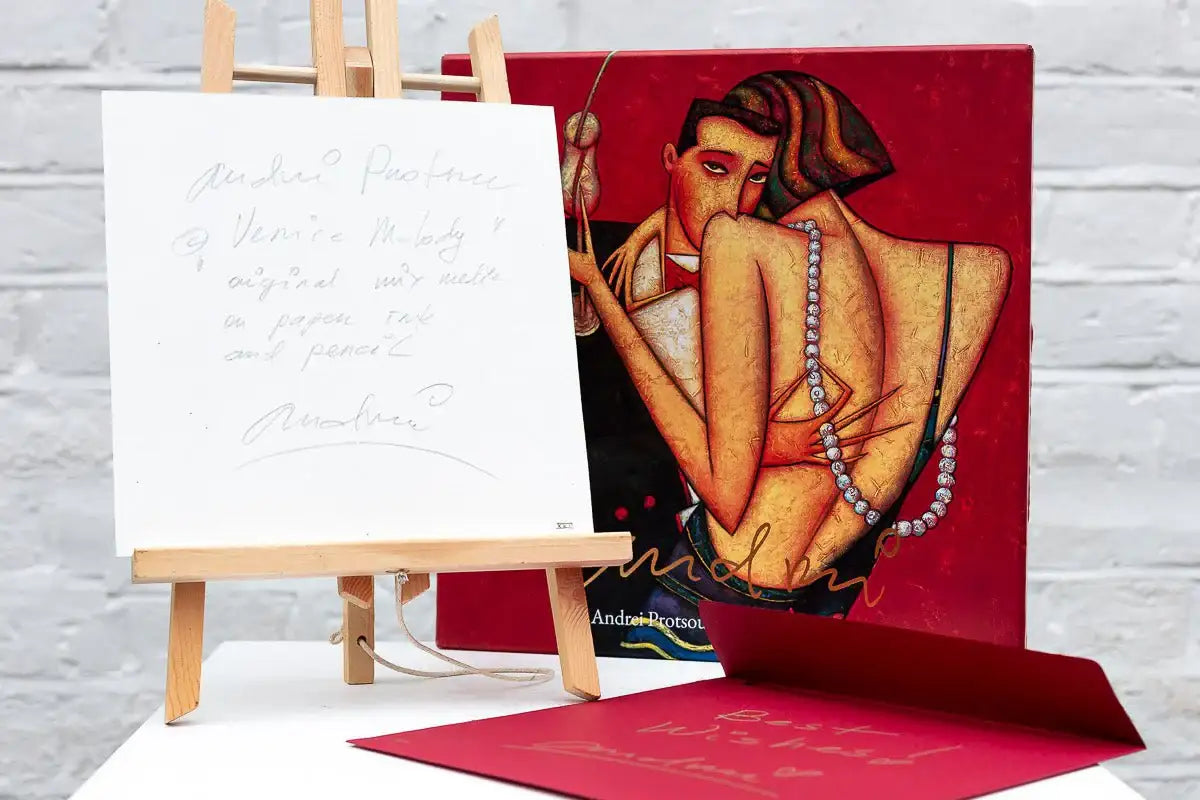 Andrei Protsou
© "Venice Melody"
original mix media
on paper ink
and pencil
Andrei
Andrei
Andrei Protsou
Best
Wishes!
Andrei